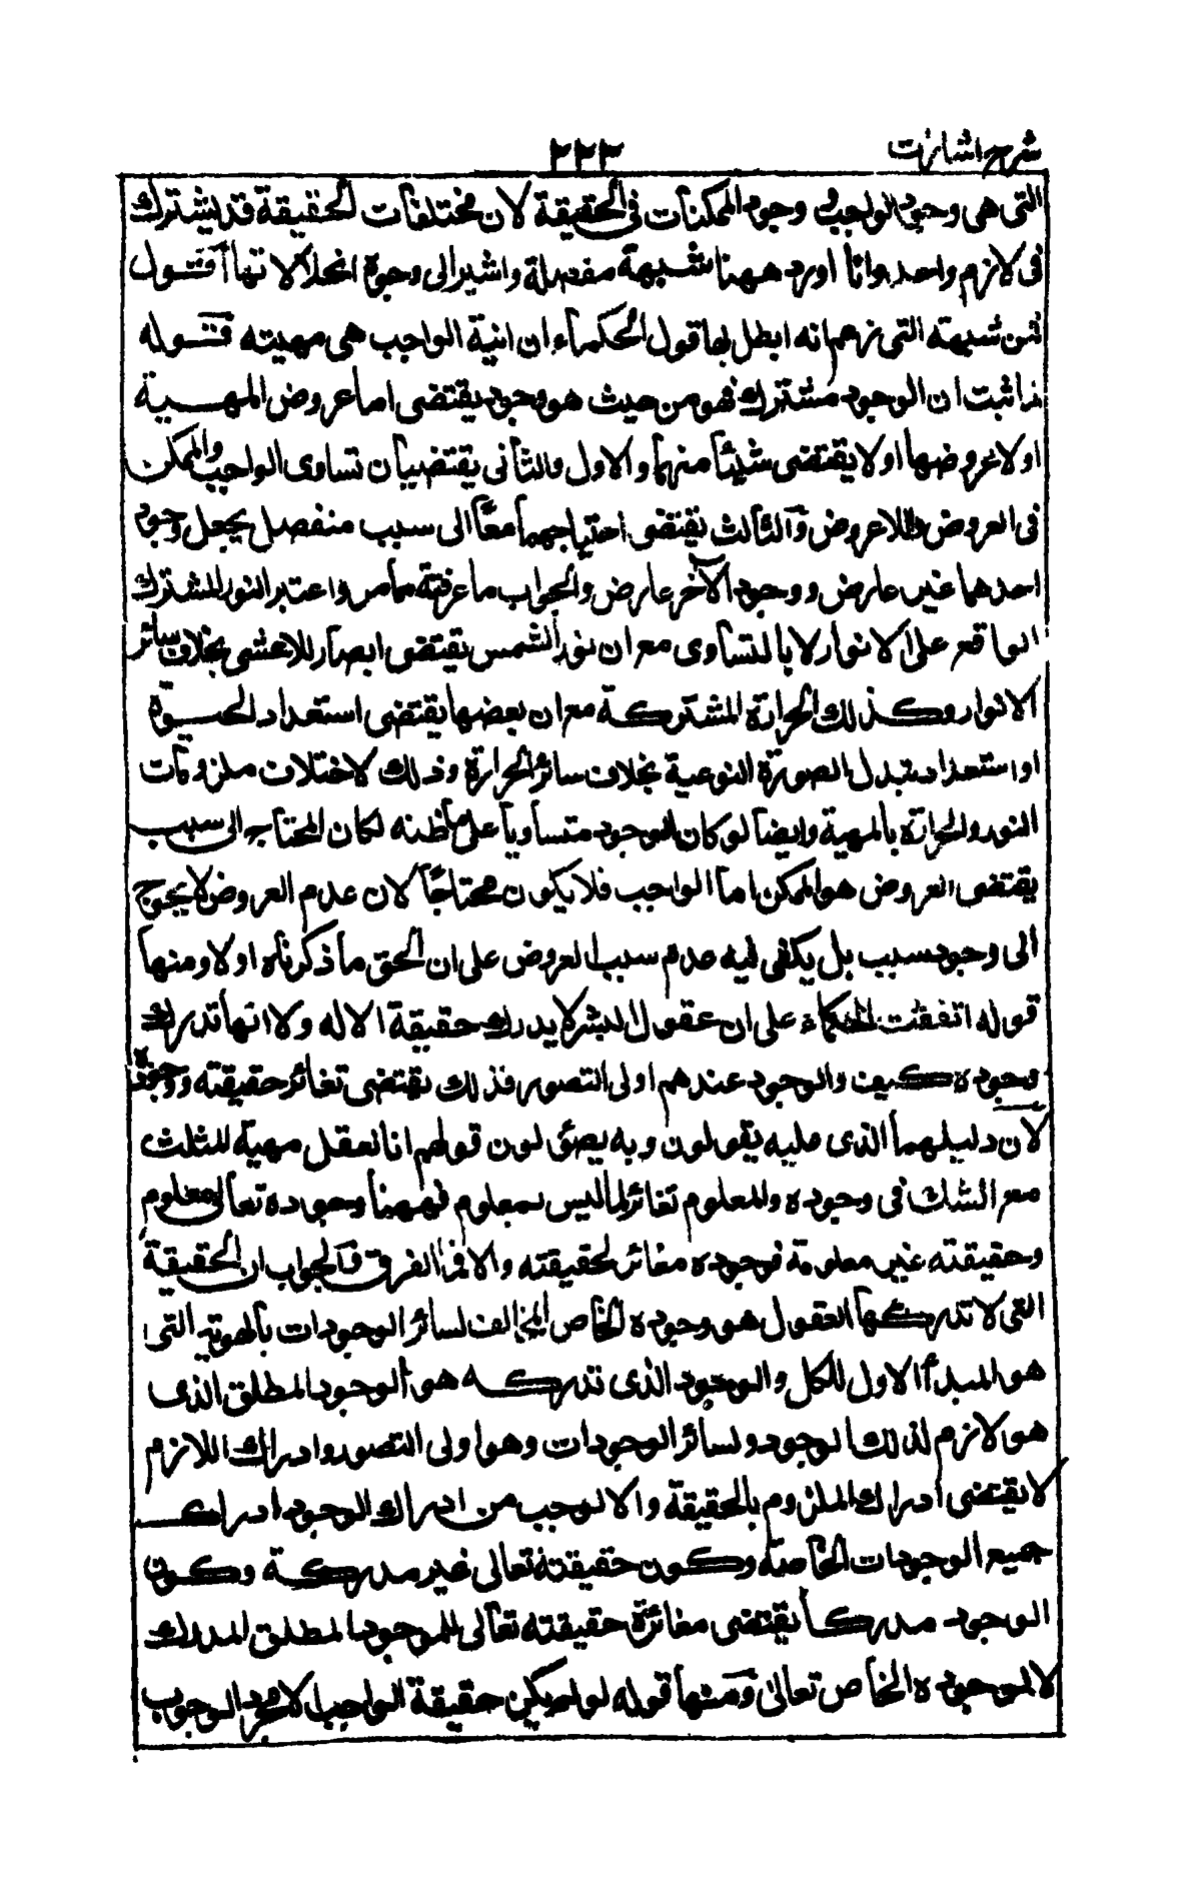 شرح اشارات
٢٢٣
التى هى وجود الواجب و وجود الممكنات فى الحقيقة لان مختلفات الحقيقة قد يشترك
فى لازم واحد وانا اورد ههنا شبهة مفصلة واشير الى وجوه انحلالاتها اقول
فمن شبهته التى زعم انه ابطل بها قول الحكماء ان انية الواجب هى مهيته قوله
لما ثبت ان الوجود مشترك فهو من حيث هو وجود يقتضى اما عروض المهية
او لا عروضها او لا يقتضى شيئا منهما والاول والثانى يقتضيان تساوى الواجب والممكن
فى العروض واللاعروض والثالث يقتضى احتياجهما معا الى سبب منفصل يجعل وجود
احدهما غير عارض و وجود الآخر عارض والجواب ما عرفته مما مر واعتبر النور المشترك
الواقع على الانوار لا بالتساوى مع ان نور الشمس يقتضى ابصار الاعشى بخلاف سائر
الانوار وكذلك الحرارة المشتركة مع ان بعضها يقتضى استعداد الحيوة
او استعداد تبدل الصورة النوعية بخلاف سائر الحرارة وذلك لاختلاف ملزومات
النور والحرارة بالمهية وايضا لو كان الوجود متساويا على ما ظنه لكان المحتاج الى سبب
يقتضى العروض هو الممكن اما الواجب فلا يكون محتاجا لان عدم العروض لا يحوج
الى وجود سبب بل يكفى فيه عدم سبب العروض على ان الحق ما ذكرناه اولا ومنها
قوله اتفقت الحكماء على ان عقول البشر لا يدرك حقيقة الاله ولا انها تدرك
وجوده كيف والوجود عندهم اولى التصور فذلك يقتضى تغائر حقيقته ووجوده
لان دليلهما الذى عليه يقولون وبه يصئولون قولهم انا نعقل مهية المثلث
مع الشك فى وجوده والمعلوم تغائر لما ليس بمعلوم فههنا وجوده تعالى معلوم
وحقيقته غير معلومة فوجوده مغائر لحقيقته والا فما الفرق والجواب ان الحقيقة
التى لا تدركها العقول هو وجوده الخاص المخالف لسائر الوجودات بالهوية التى
هو المبدأ الاول للكل والوجود الذى تدركه هو الوجود المطلق الذى
هو لازم لذلك الوجود ولسائر الوجودات وهو اولى التصور وادراك اللازم
لا يقتضى ادراك الملزوم بالحقيقة والا لوجب من ادراك الوجود ادراك
جميع الوجودات الخاصة وكون حقيقته تعالى غير مدركة وكون
الوجود مدركا يقتضى مغائرة حقيقته تعالى للوجود المطلق المدرك
لا لوجوده الخاص تعالى ومنها قوله لو لم يكن حقيقة الواجب الا مجرد الوجوب